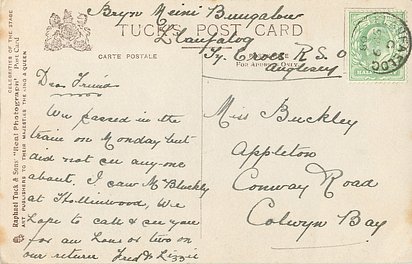 Bryn Meini Bungalow
TUCK'S POST CARD
Llanfaelog
CARTE POSTALE
Ty Croes R.S.O
FOR ADDRESS ONLY.
Anglesey
CELEBRITIES OF THE STAGE.
Raphael Tuck & Sons' "Real Photograph" Post Card
ART PUBLISHERS TO THEIR MAJESTIES THE KING & QUEEN
Dear Friend
We passed in the
train on Monday but
did not see any one
about. I saw Mr Bluckley
at Hollinwood. We
hope to call & see you
for an hour or two on
our return Fred & Lizzie
Miss Buckley
Appleton
Conway Road
Colwyn Bay